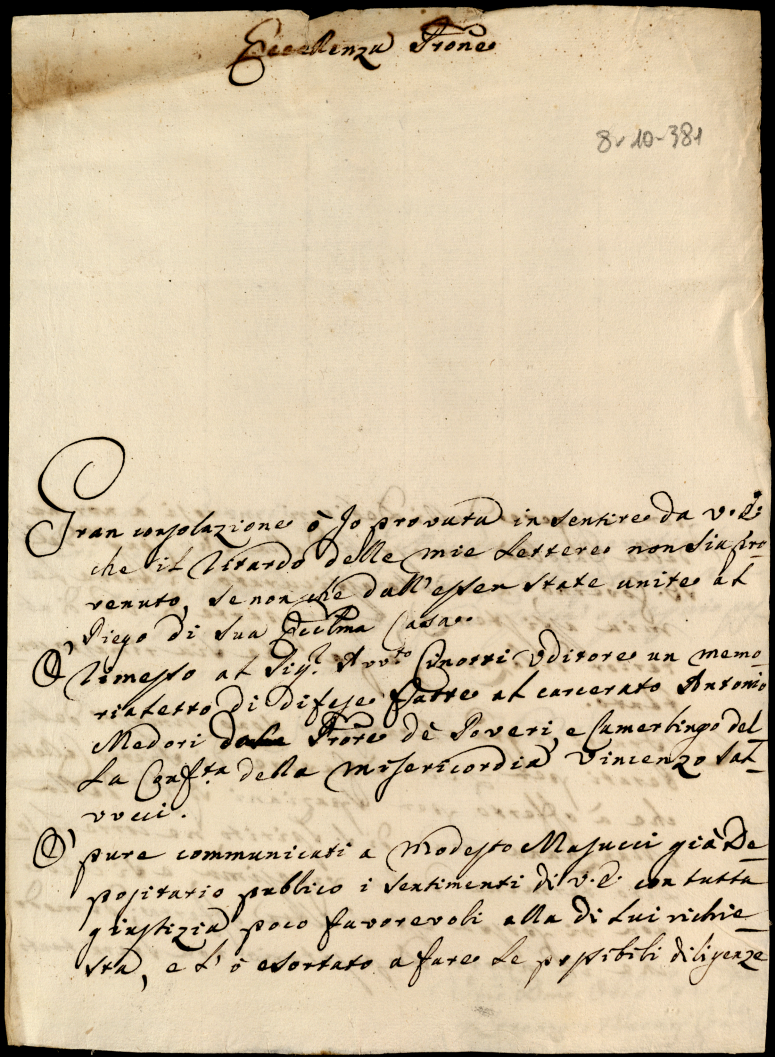 Eccellenza Prōne
8-10-381
Gran consolazione ò Io provata in sentire da V. E.
che il ritardo delle mie Lettere non sia pro-
venuto, se non che dall'esser state unite al
Piego di sua Eccllma Casa.
O' rimesso al Sig.r Avv.to Conotti Uditore un memo-
rialetto di difese fatte al carcerato Antonio
Medori dal Prōre dè Poveri, e Camerlingo del-
la Conf.ta della Misericordia Vincenzo Sal-
vucci.
O' pure communicati a Modesto Masucci già De-
positario publico i sentimenti di V. E. con tutta
giustizia poco favorevoli alla di lui richie-
sta, e l'ò esortato a fare le possibili diligenze